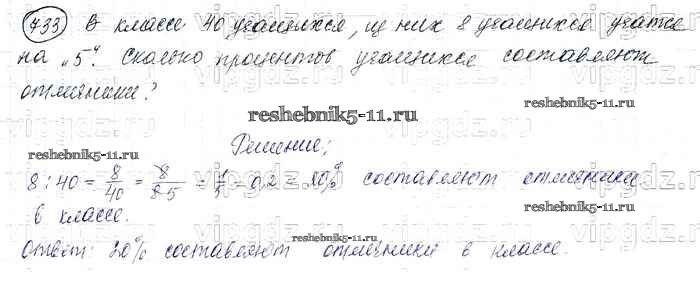 733 В классе 40 учащихся, из них 8 учащихся учатся
на „5“. Сколько процентов учащихся составляют
отличники?
reshebnik5-11.ru
reshebnik5-11.ru
Решение:
reshebnik5-11.ru
8 : 40 = 8/40 = 8/8·5 = 1/5 = 0,2 = 20% составляют отличники
в классе.
reshebnik5-11.ru
Ответ: 20% составляют отличники в классе.